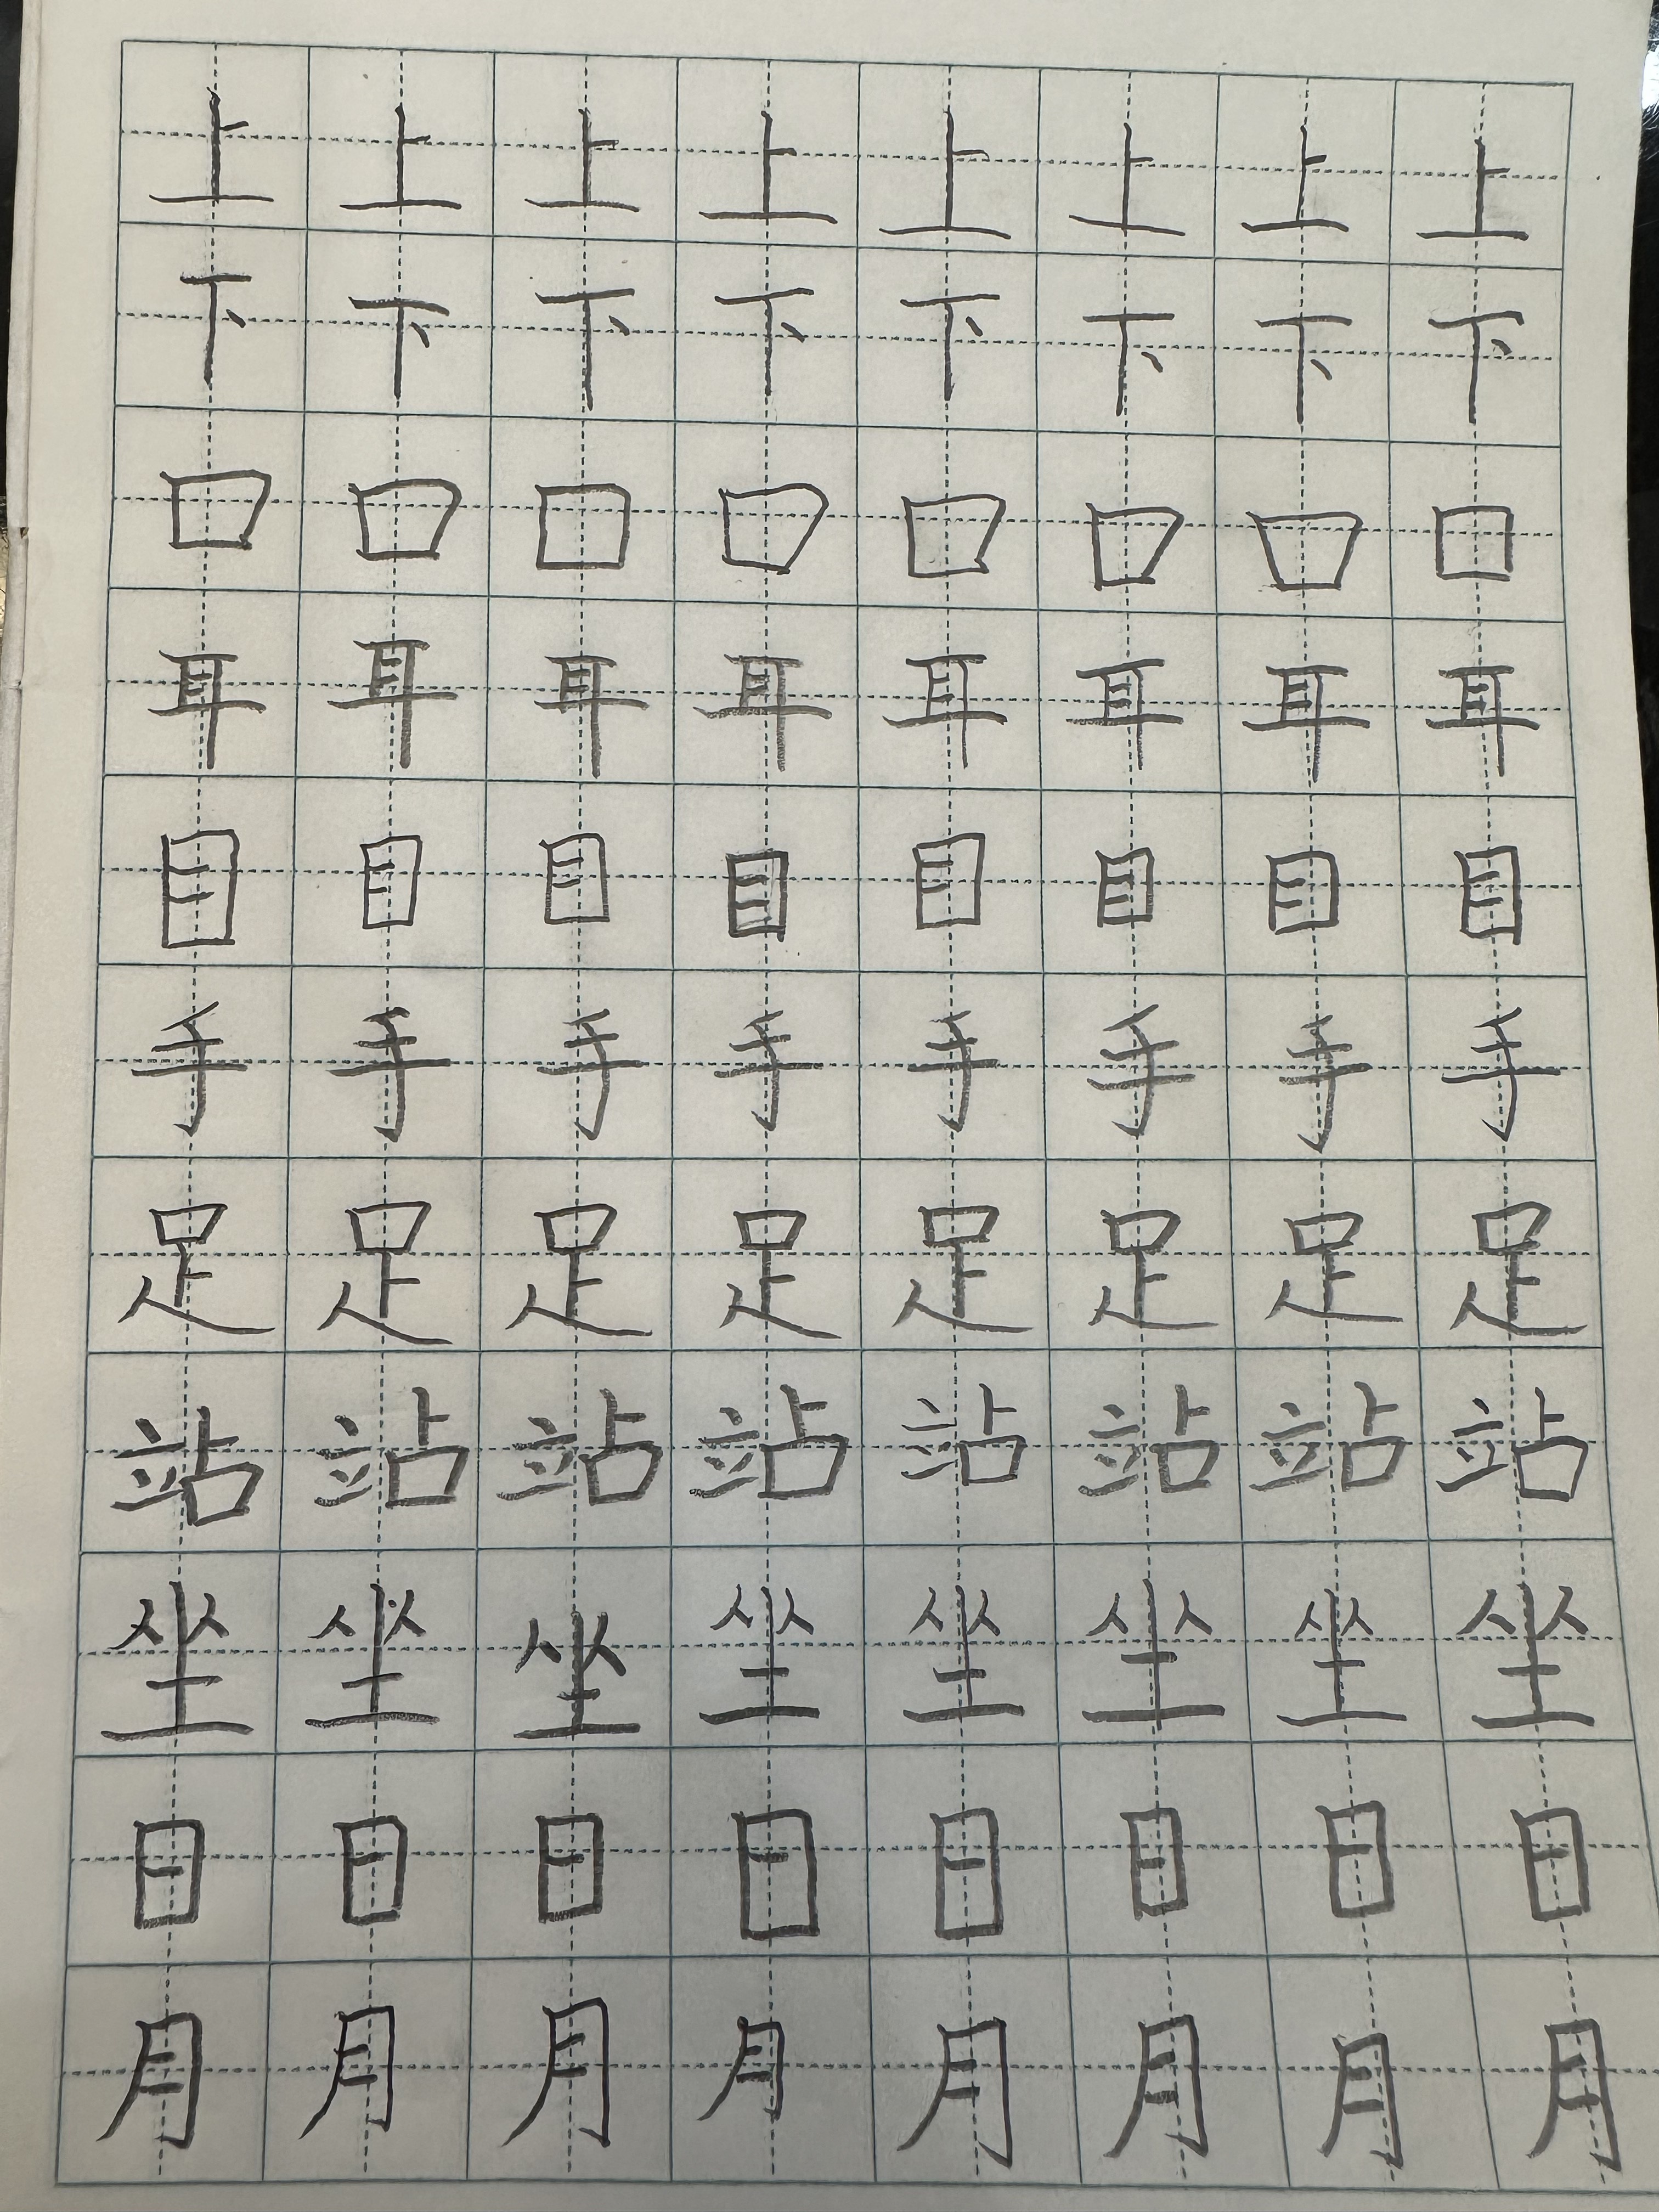 上上上上上上上上
下下下下下下下下
口口口口口口口口
耳耳耳耳耳耳耳耳
目目目目目目目目
手手手手手手手手
足足足足足足足足
站站站站站站站站
坐坐坐坐坐坐坐坐
日日日日日日日日
月月月月月月月月